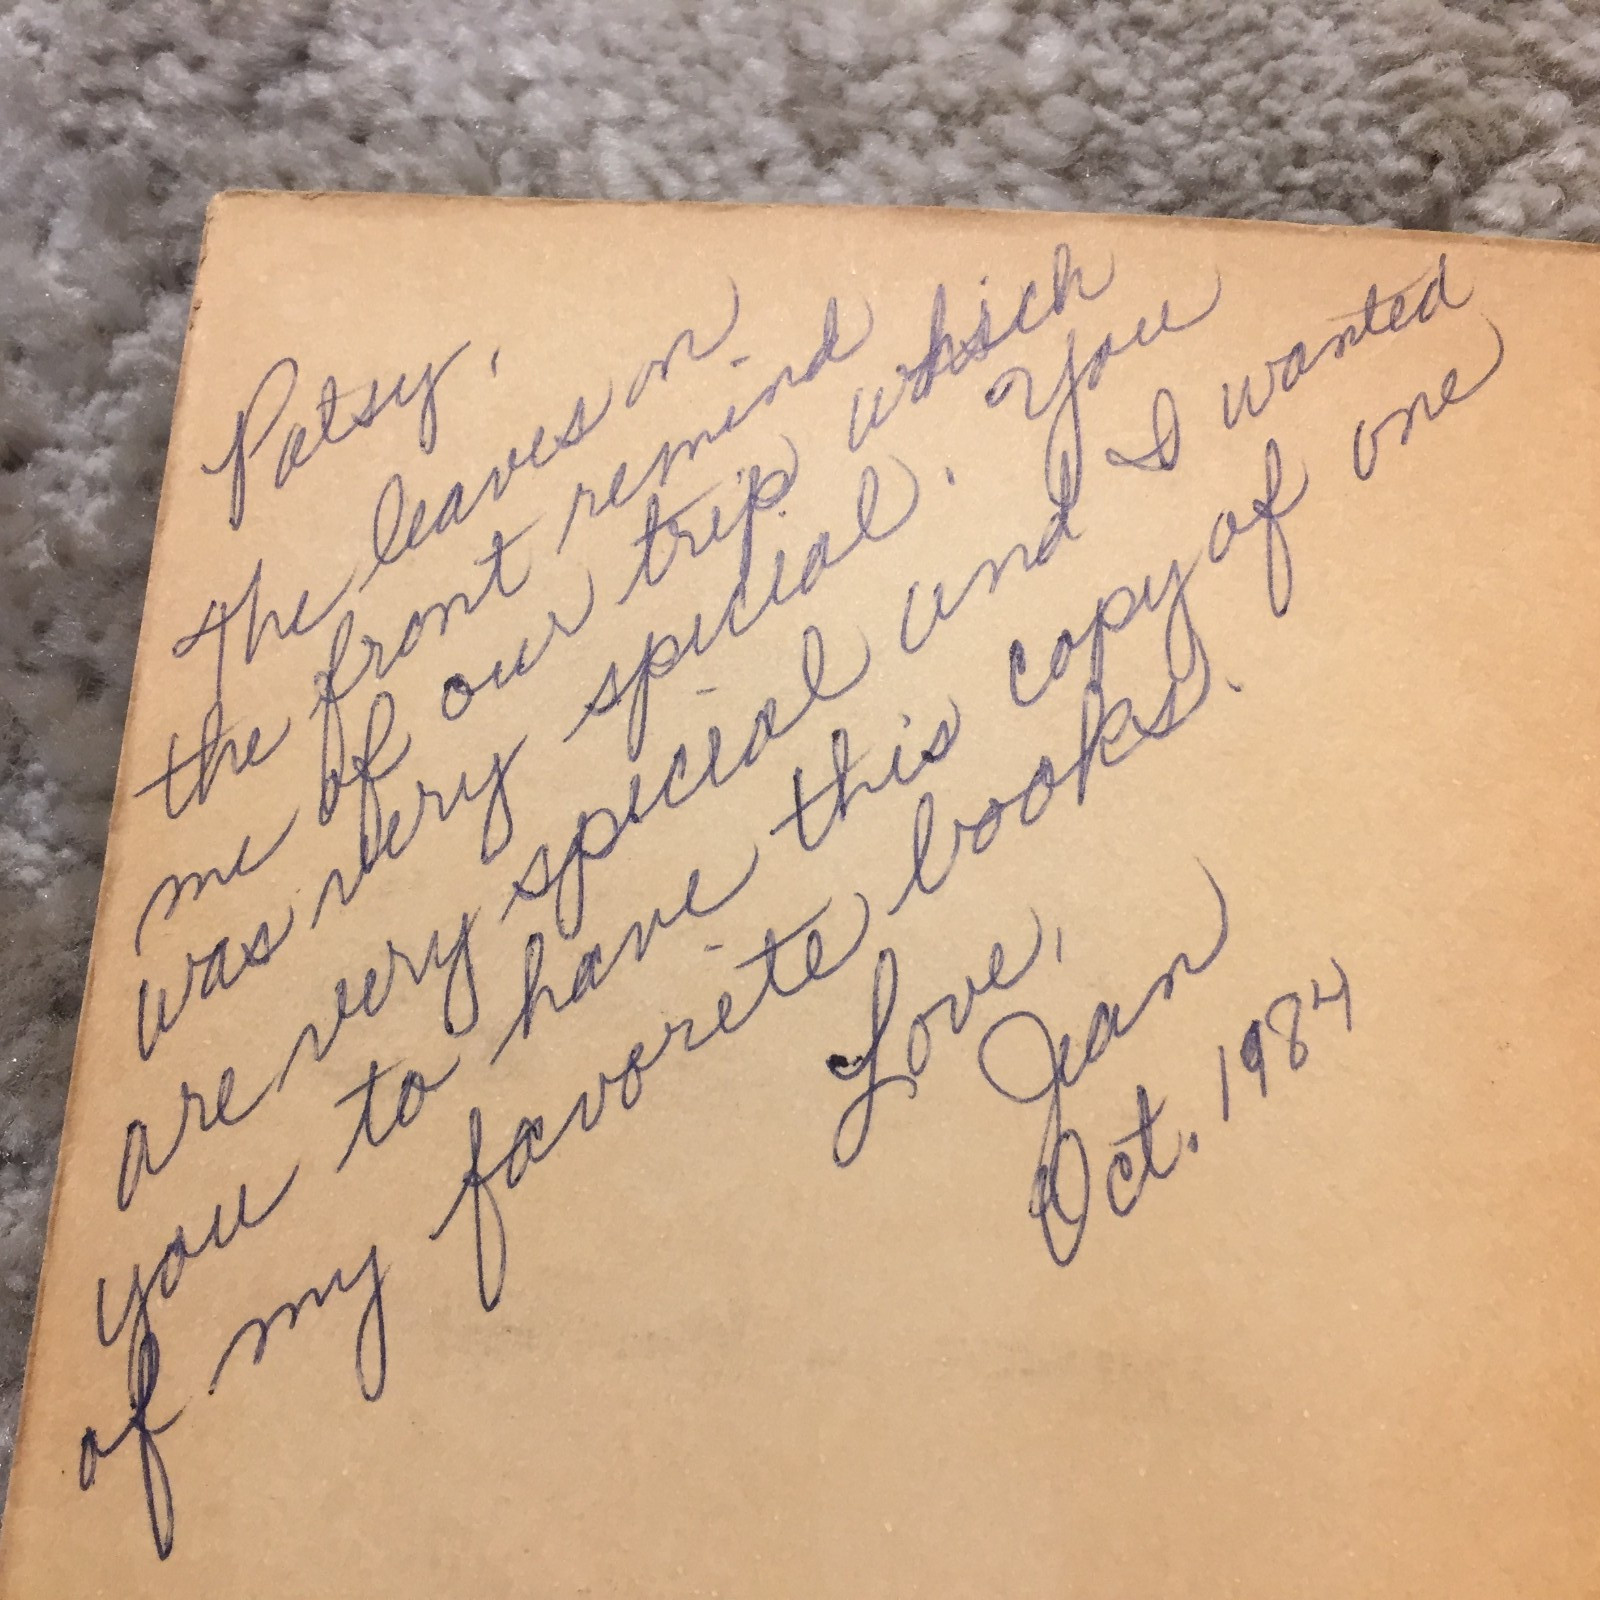 Patsy,
The leaves on
the front remind
me of our trip which
was very special. You
are very special and I wanted
you to have this copy of one
of my favorite books.
Love,
Jean
Oct. 1984